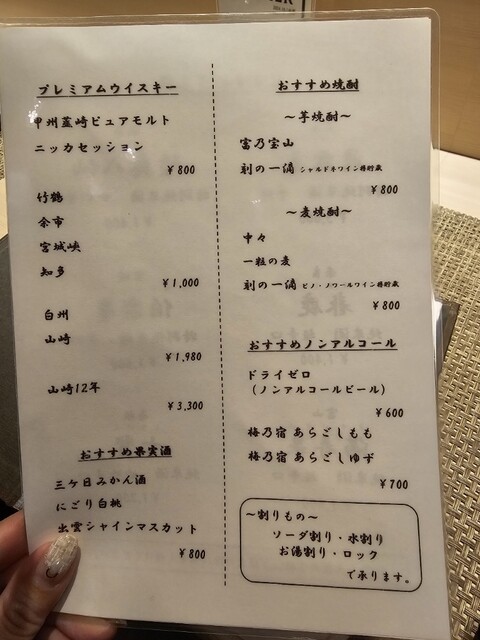 プレミアムウイスキー
甲州韮崎ピュアモルト
ニッカセッション
¥800
竹鶴
余市
宮城峡
知多
¥1,000
白州
山崎
¥1,980
山崎12年
¥3,300
おすすめ果実酒
三ケ日みかん酒
にごり白桃
出雲シャインマスカット
¥800
おすすめ焼酎
～芋焼酎～
富乃宝山
刻の一滴 シャルドネワイン樽貯蔵
¥800
～麦焼酎～
中々
一粒の麦
刻の一滴 ピノ・ノワールワイン樽貯蔵
¥800
おすすめノンアルコール
ドライゼロ
(ノンアルコールビール)
¥600
梅乃宿 あらごしもも
梅乃宿 あらごしゆず
¥700
～割りもの～
ソーダ割り・水割り
お湯割り・ロック
で承ります。